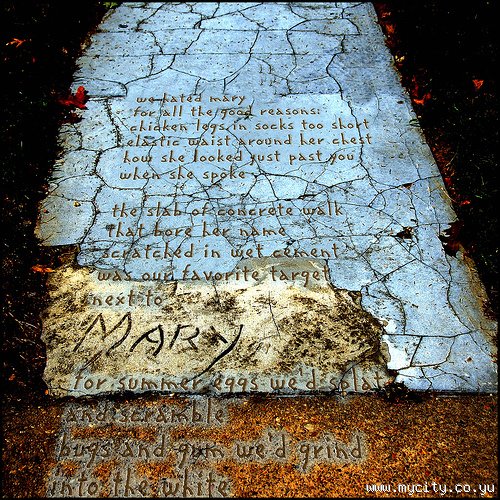 we hated mary
for all the good reasons:
chicken legs in socks too short
elastic waist around her chest
how she looked just past you
when she spoke
the slab of concrete walk
that bore her name
scratched in wet cement
was our favorite target
next to
MARY
for summer eggs we'd splat
and scramble
bugs and gum we'd grind
into the white
www.mycity.co.yu